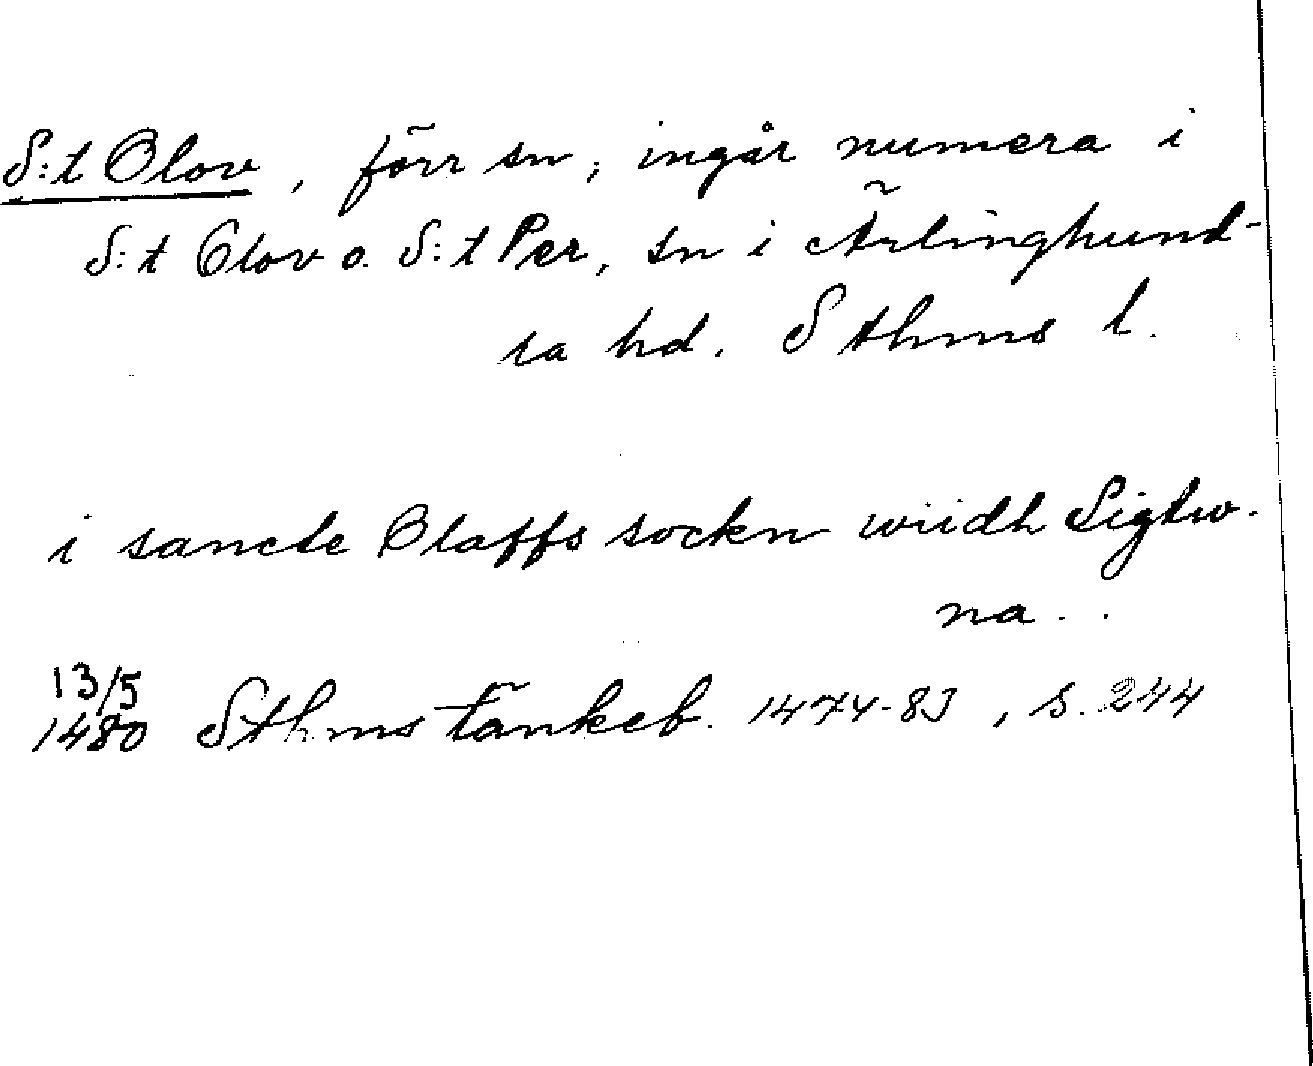 S:t Olov, förr sn; ingår numera i
S:t Olov o. S:t Per, sn i Ärlinghund-
ra hd. Sthms l.
i sancte Olaffs sockn wiidh Sigtw-
na..
13/5
1480 Sthms tänkeb. 1474-83, s. 244